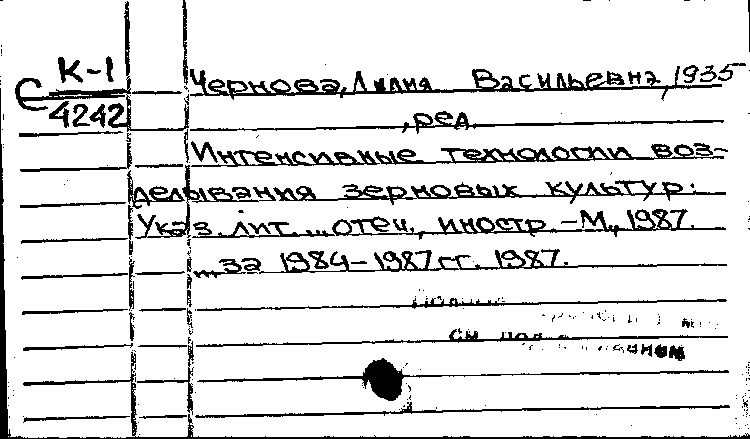 К-1
С 4242
Чернова, Лилия Васильевна, 1935
, ред.
Интенсивные технологии воз-
делывания зерновых культур:
Указ. лит. ... отеч., иностр. - М., 1987.
... за 1984-1987 гг. 1987.
см. под